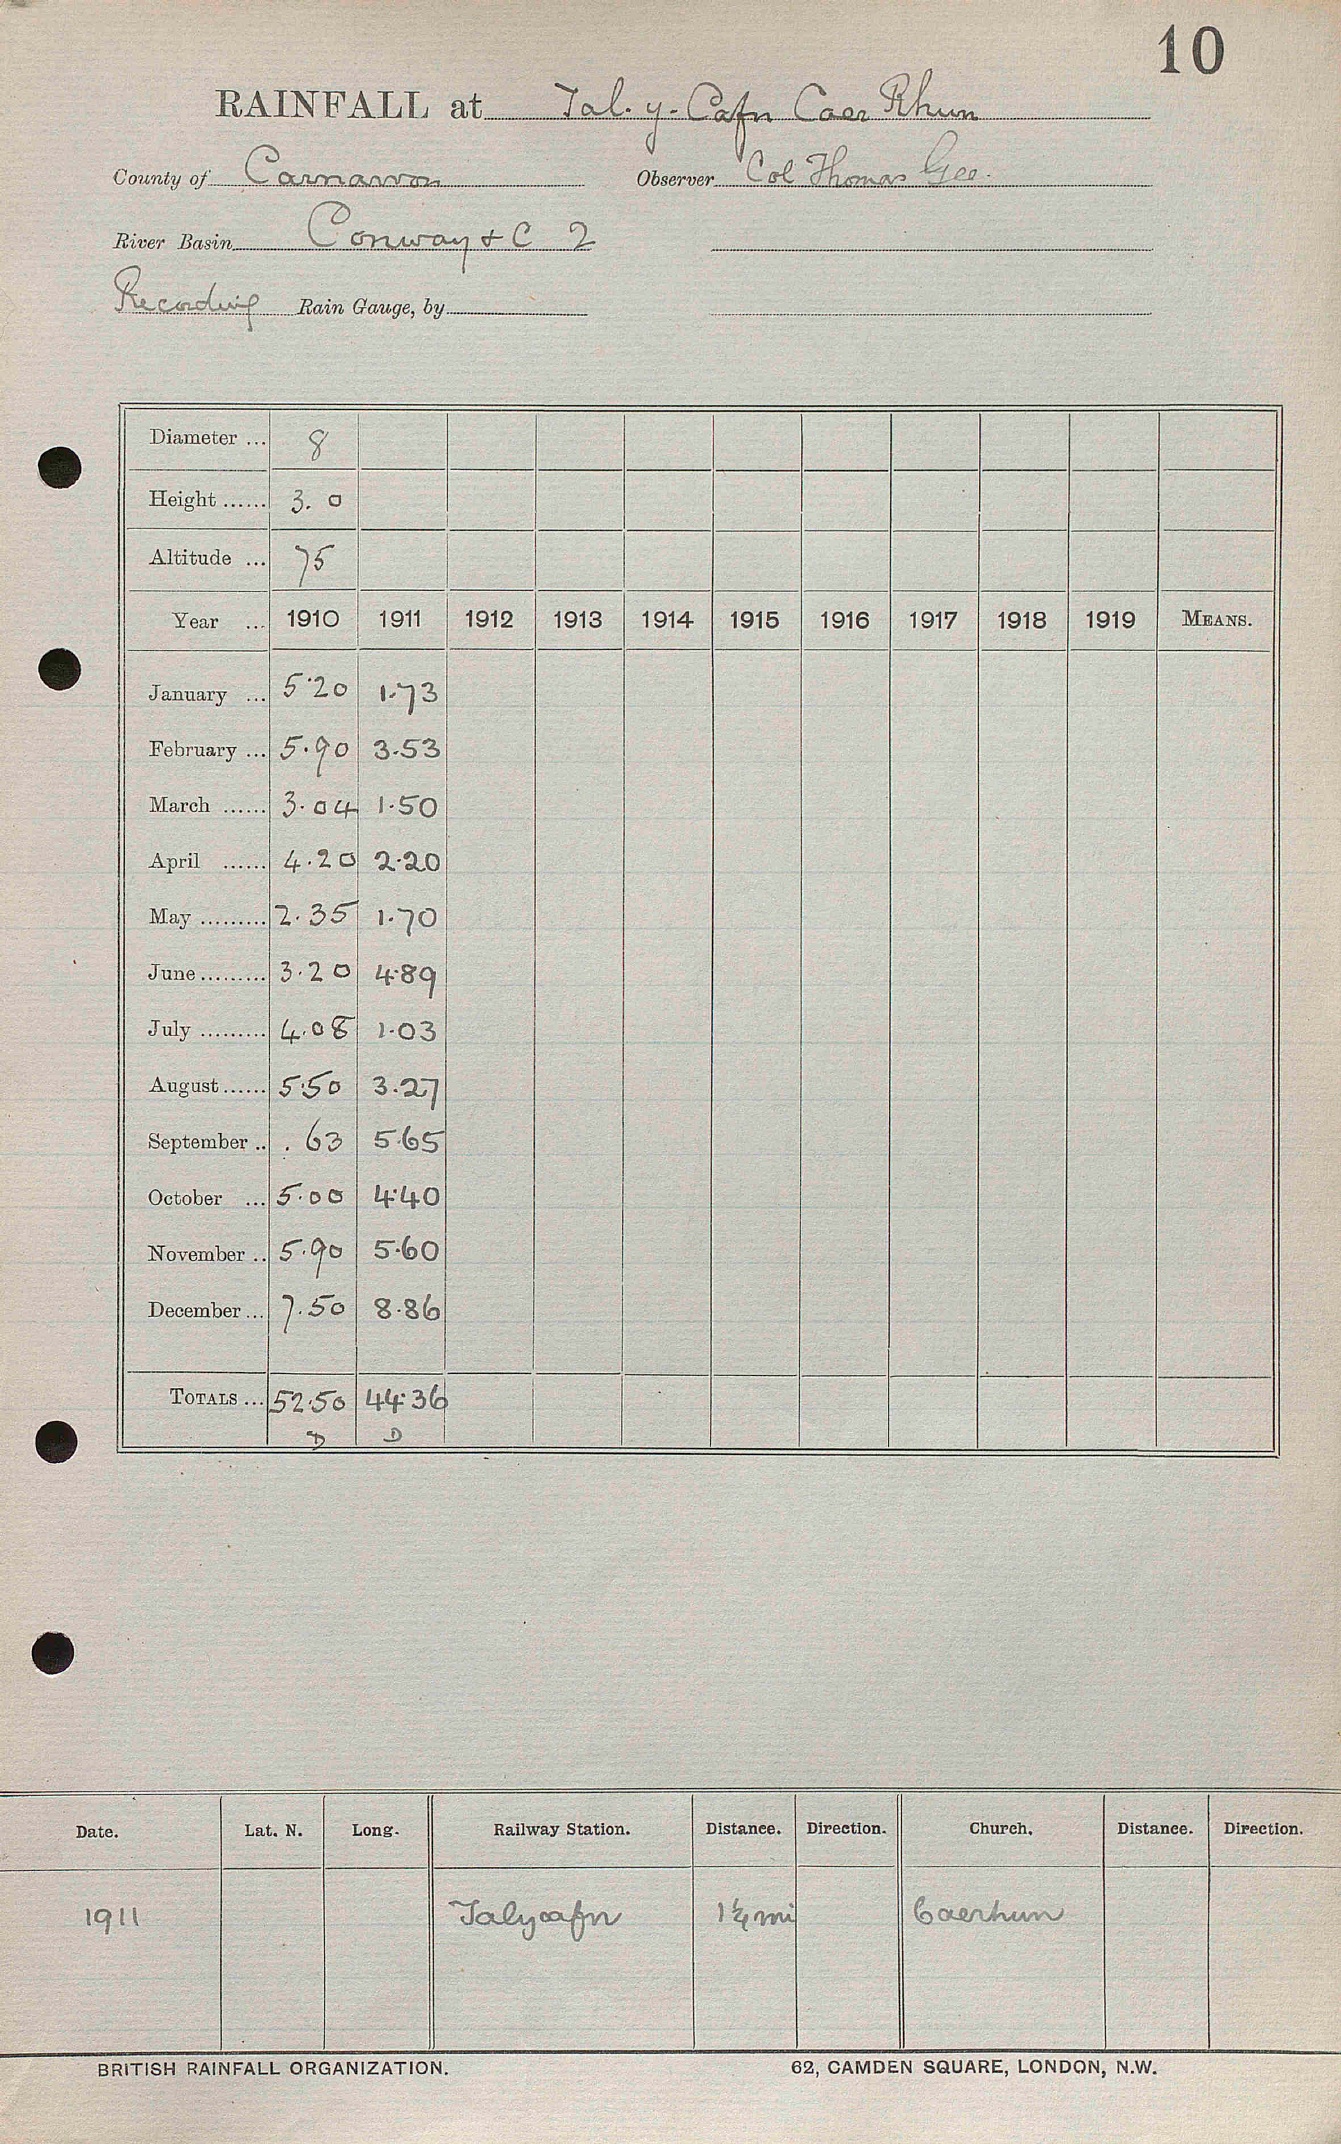 10
RAINFALL at Tal. y. Cafn Caer Rhun
County of Carnarvon Observer Col Thomas Gee.
River Basin Conway + C 2
Recording Rain Gauge, by
Diameter ... 8
Height ...... 3. 0
Altitude ... 75
Year ... 1910 1911 1912 1913 1914 1915 1916 1917 1918 1919 MEANS.
January ... 5.20 1.73
February ... 5.90 3.53
March ...... 3.04 1.50
April ...... 4.20 2.20
May ......... 2.35 1.70
June ......... 3.20 4.89
July ......... 4.08 1.03
August ...... 5.50 3.27
September .. .63 5.65
October ... 5.00 4.40
November .. 5.90 5.60
December ... 7.50 8.86
TOTALS ... 52.50 44.36
D D
Date. Lat. N. Long. Railway Station. Distance. Direction. Church. Distance. Direction.
1911 Talycafn 1¼ mi Caerhun
BRITISH RAINFALL ORGANIZATION. 62, CAMDEN SQUARE, LONDON, N.W.